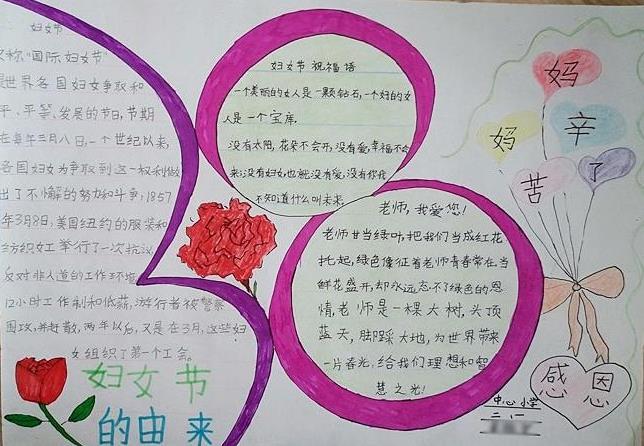 妇女节
又称"国际妇女节"
是世界各国妇女争取和
平、平等、发展的节日,节期
在每年三月八日,一个世纪以来,
各国妇女为争取到这一权利做
出了不懈的努力和斗争,1857
年3月8号,美国纽约的服装和
纺织女工举行了一次抗议,
反对非人道的工作环境
12小时工作制和低薪,游行者被警察
围攻,并赶散,两年以后,又是在3月,这些妇
女组织了第一个工会。
妇女节
的由来
妇女节祝福语
一个美丽的女人是一颗钻石,一个妇的女
人是一个宝库。
没有太阳,花朵不会开,没有爱,幸福不会
来,没有妇女,也就没有爱,没有你我
不知道什么叫未来
老师,我爱您!
老师甘当绿叶,把我们当成红花
托起,绿色像征着老师青春常在,当
鲜花盛开,却永远忘不了绿色的恩
情,老师是一棵大树,头顶
蓝天,脚踩大地,为世界带来
一片春光,给我们理想和智
慧之光!
妈
妈
辛
苦
了
感恩
中心小学
二、1